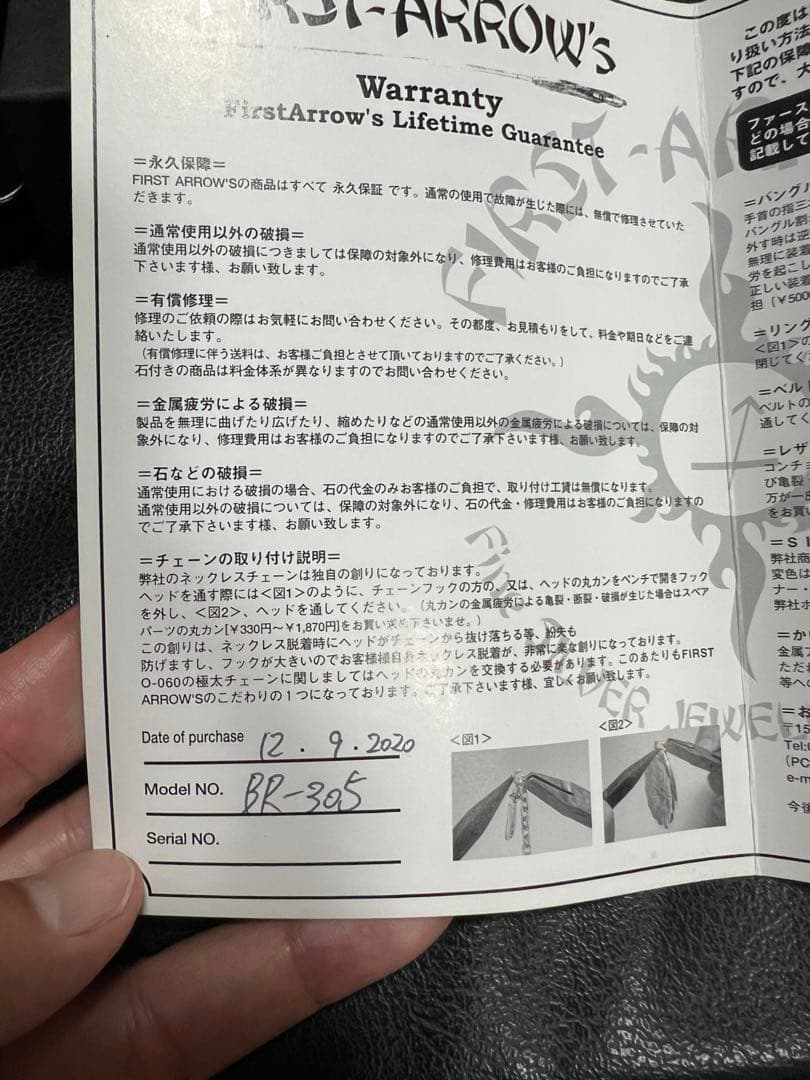 FIRST-ARROW's
Warranty
FirstArrow's Lifetime Guarantee
＝永久保障＝
FIRST ARROW'Sの商品はすべて 永久保証 です。通常の使用で故障が生じた際には、無償で修理させていた
だきます。
＝通常使用以外の破損＝
通常使用以外の破損につきましては保障の対象外になり、修理費用はお客様のご負担になりますのでご了承
下さいます様、お願い致します。
＝有償修理＝
修理のご依頼の際はお気軽にお問い合わせください。その都度、お見積もりをして、料金や期日などをご連
絡いたします。
（有償修理に伴う送料は、お客様ご負担とさせて頂いておりますのでご了承ください。）
石付きの商品は料金体系が異なりますのでお問い合わせください。
＝金属疲労による破損＝
製品を無理に曲げたり広げたり、縮めたりなどの通常使用以外の金属疲労による破損については、保障の対
象外になり、修理費用はお客様のご負担になりますのでご了承下さいます様、お願い致します。
＝石などの破損＝
通常使用における破損の場合、石の代金のみお客様のご負担で、取り付け工賃は無償になります。
通常使用以外の破損については、保障の対象外になり、石の代金・修理費用はお客様のご負担になりますの
でご了承下さいます様、お願い致します。
＝チェーンの取り付け説明＝
弊社のネックレスチェーンは独自の創りになっております。
ヘッドを通す際には＜図1＞のように、チェーンフックの方の、又は、ヘッドの丸カンをペンチで開きフック
を外し、＜図2＞、ヘッドを通してください。（丸カンの金属疲労による亀裂・断裂・破損が生じた場合はスペア
パーツの丸カン[￥330円～￥1,870円]をお買い求め下さいませ。）
この創りは、ネックレス脱着時にヘッドがチェーンから抜け落ちる等、紛失も
防げますし、フックが大きいのでお客様自身ネックレス脱着が、非常に楽な創りになっております。
O-060の極太チェーンに関しましてはヘッドの丸カンを交換する必要があります。このあたりもFIRST
ARROW'Sのこだわりの1つになっております。ご了承下さいます様、宜しくお願い致します。
Date of purchase 12.9.2020
Model NO. BR-305
Serial NO.
＜図1＞
＜図2＞
FIRST-AR
Fine
SILVER JEWEL
この度は
り扱い方法
下記の保障
すので、大
ファース
どの場合
記載して
＝バングル
手首の指三
バングル割
外す時は逆
無理に装着
労を起こし
正しい装着
担（￥500
＝リング
＜図1＞の
閉じてく
＝ベルト
ベルトの
通してく
＝レザ
コンチョ
び亀裂・
万が一出
をお買い
＝SI
弊社商
変色は
ナー・
弊社ホ
＝か
金属ア
ただ
等へ
＝お
〒15
Tel:0
(PC
e-m
今後